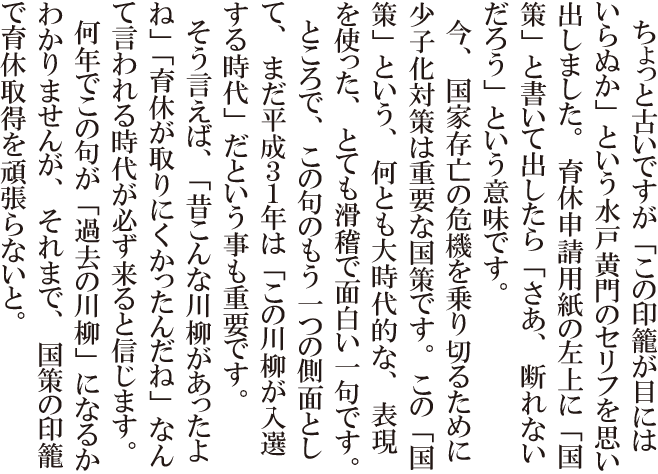 ちょっと古いですが「この印籠が目には
いらぬか」という水戸黄門のセリフを思い
出しました。育休申請用紙の左上に「国
策」と書いて出したら「さあ、断れない
だろう」という意味です。
　今、国家存亡の危機を乗り切るために
少子化対策は重要な国策です。この「国
策」という、何とも大時代的な、表現
を使った、とても滑稽で面白い一句です。
　ところで、この句のもう一つの側面とし
て、まだ平成31年は「この川柳が入選
する時代」だという事も重要です。
　そう言えば、「昔こんな川柳があったよ
ね」「育休が取りにくかったんだね」なん
て言われる時代が必ず来ると信じます。
　何年でこの句が「過去の川柳」になるか
わかりませんが、それまで、国策の印籠
で育休取得を頑張らないと。